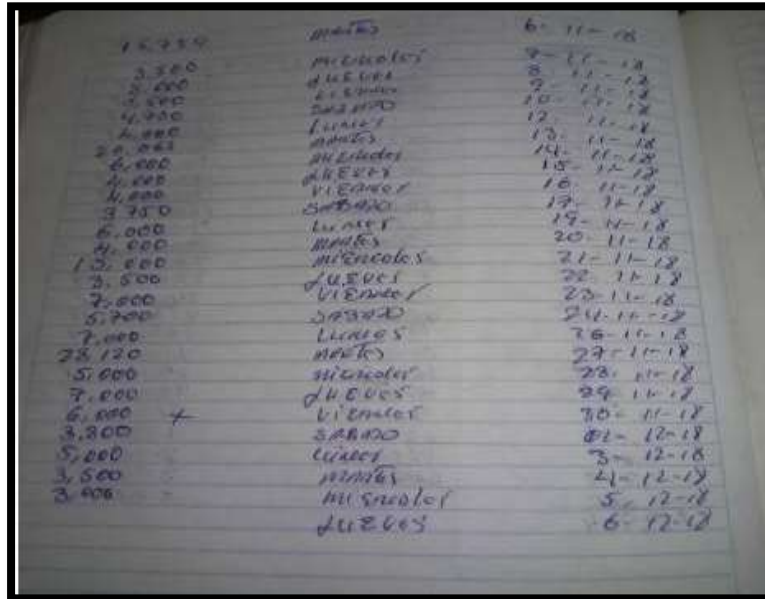 15,750 martes 6-11-18
3,500 miercoles 7-11-18
3,000 JUEVES 8-11-18
3,500 viernes 9-11-18
4,700 SABADO 10-11-18
4,000 Lunes 12-11-18
20,063 martes 13-11-18
6,000 miercoles 14-11-18
4,000 JUEVES 15-11-18
4,000 VIERNES 16-11-18
3,750 SABADO 17-11-18
6,000 Lunes 19-11-18
4,000 martes 20-11-18
13,000 miercoles 21-11-18
3,500 JUEVES 22-11-18
7,000 VIERNES 23-11-18
5,700 SABADO 24-11-18
7,000 Lunes 26-11-18
23,120 martes 27-11-18
5,000 miercoles 28-11-18
7,000 JUEVES 29-11-18
6,000 + viernes 30-11-18
3,800 SABADO 01-12-18
5,000 Lunes 3-12-18
3,500 martes 4-12-18
3,000 miercoles 5-12-18
JUEVES 6-12-18